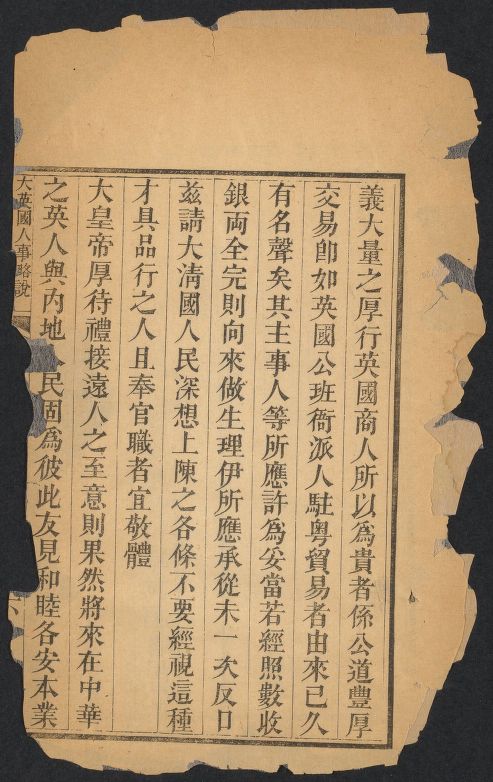 義大量之厚行英國商人所以為貴者係公道豐厚
交易卽如英國公班衙派人駐粵貿易者由來已久
有名聲矣其主事人等所應許為妥當若經照數收
銀両全完則向來做生理伊所應承從未一次反口
玆請大淸國人民深想上陳之各條不要經視這種
才具品行之人且奉官職者宜敬體
大皇帝厚待禮接遠人之至意則果然將來在中華
之英人與內地人民固為彼此友見和睦各安本業
大英國人事略說
六